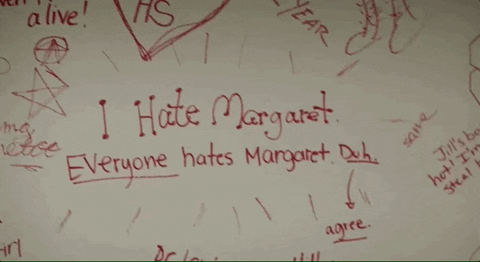 alive!
HS
YEAR
I Hate Margaret.
Everyone hates Margaret. Duh.
same
agree.
Jill's
hot! I'm
steal